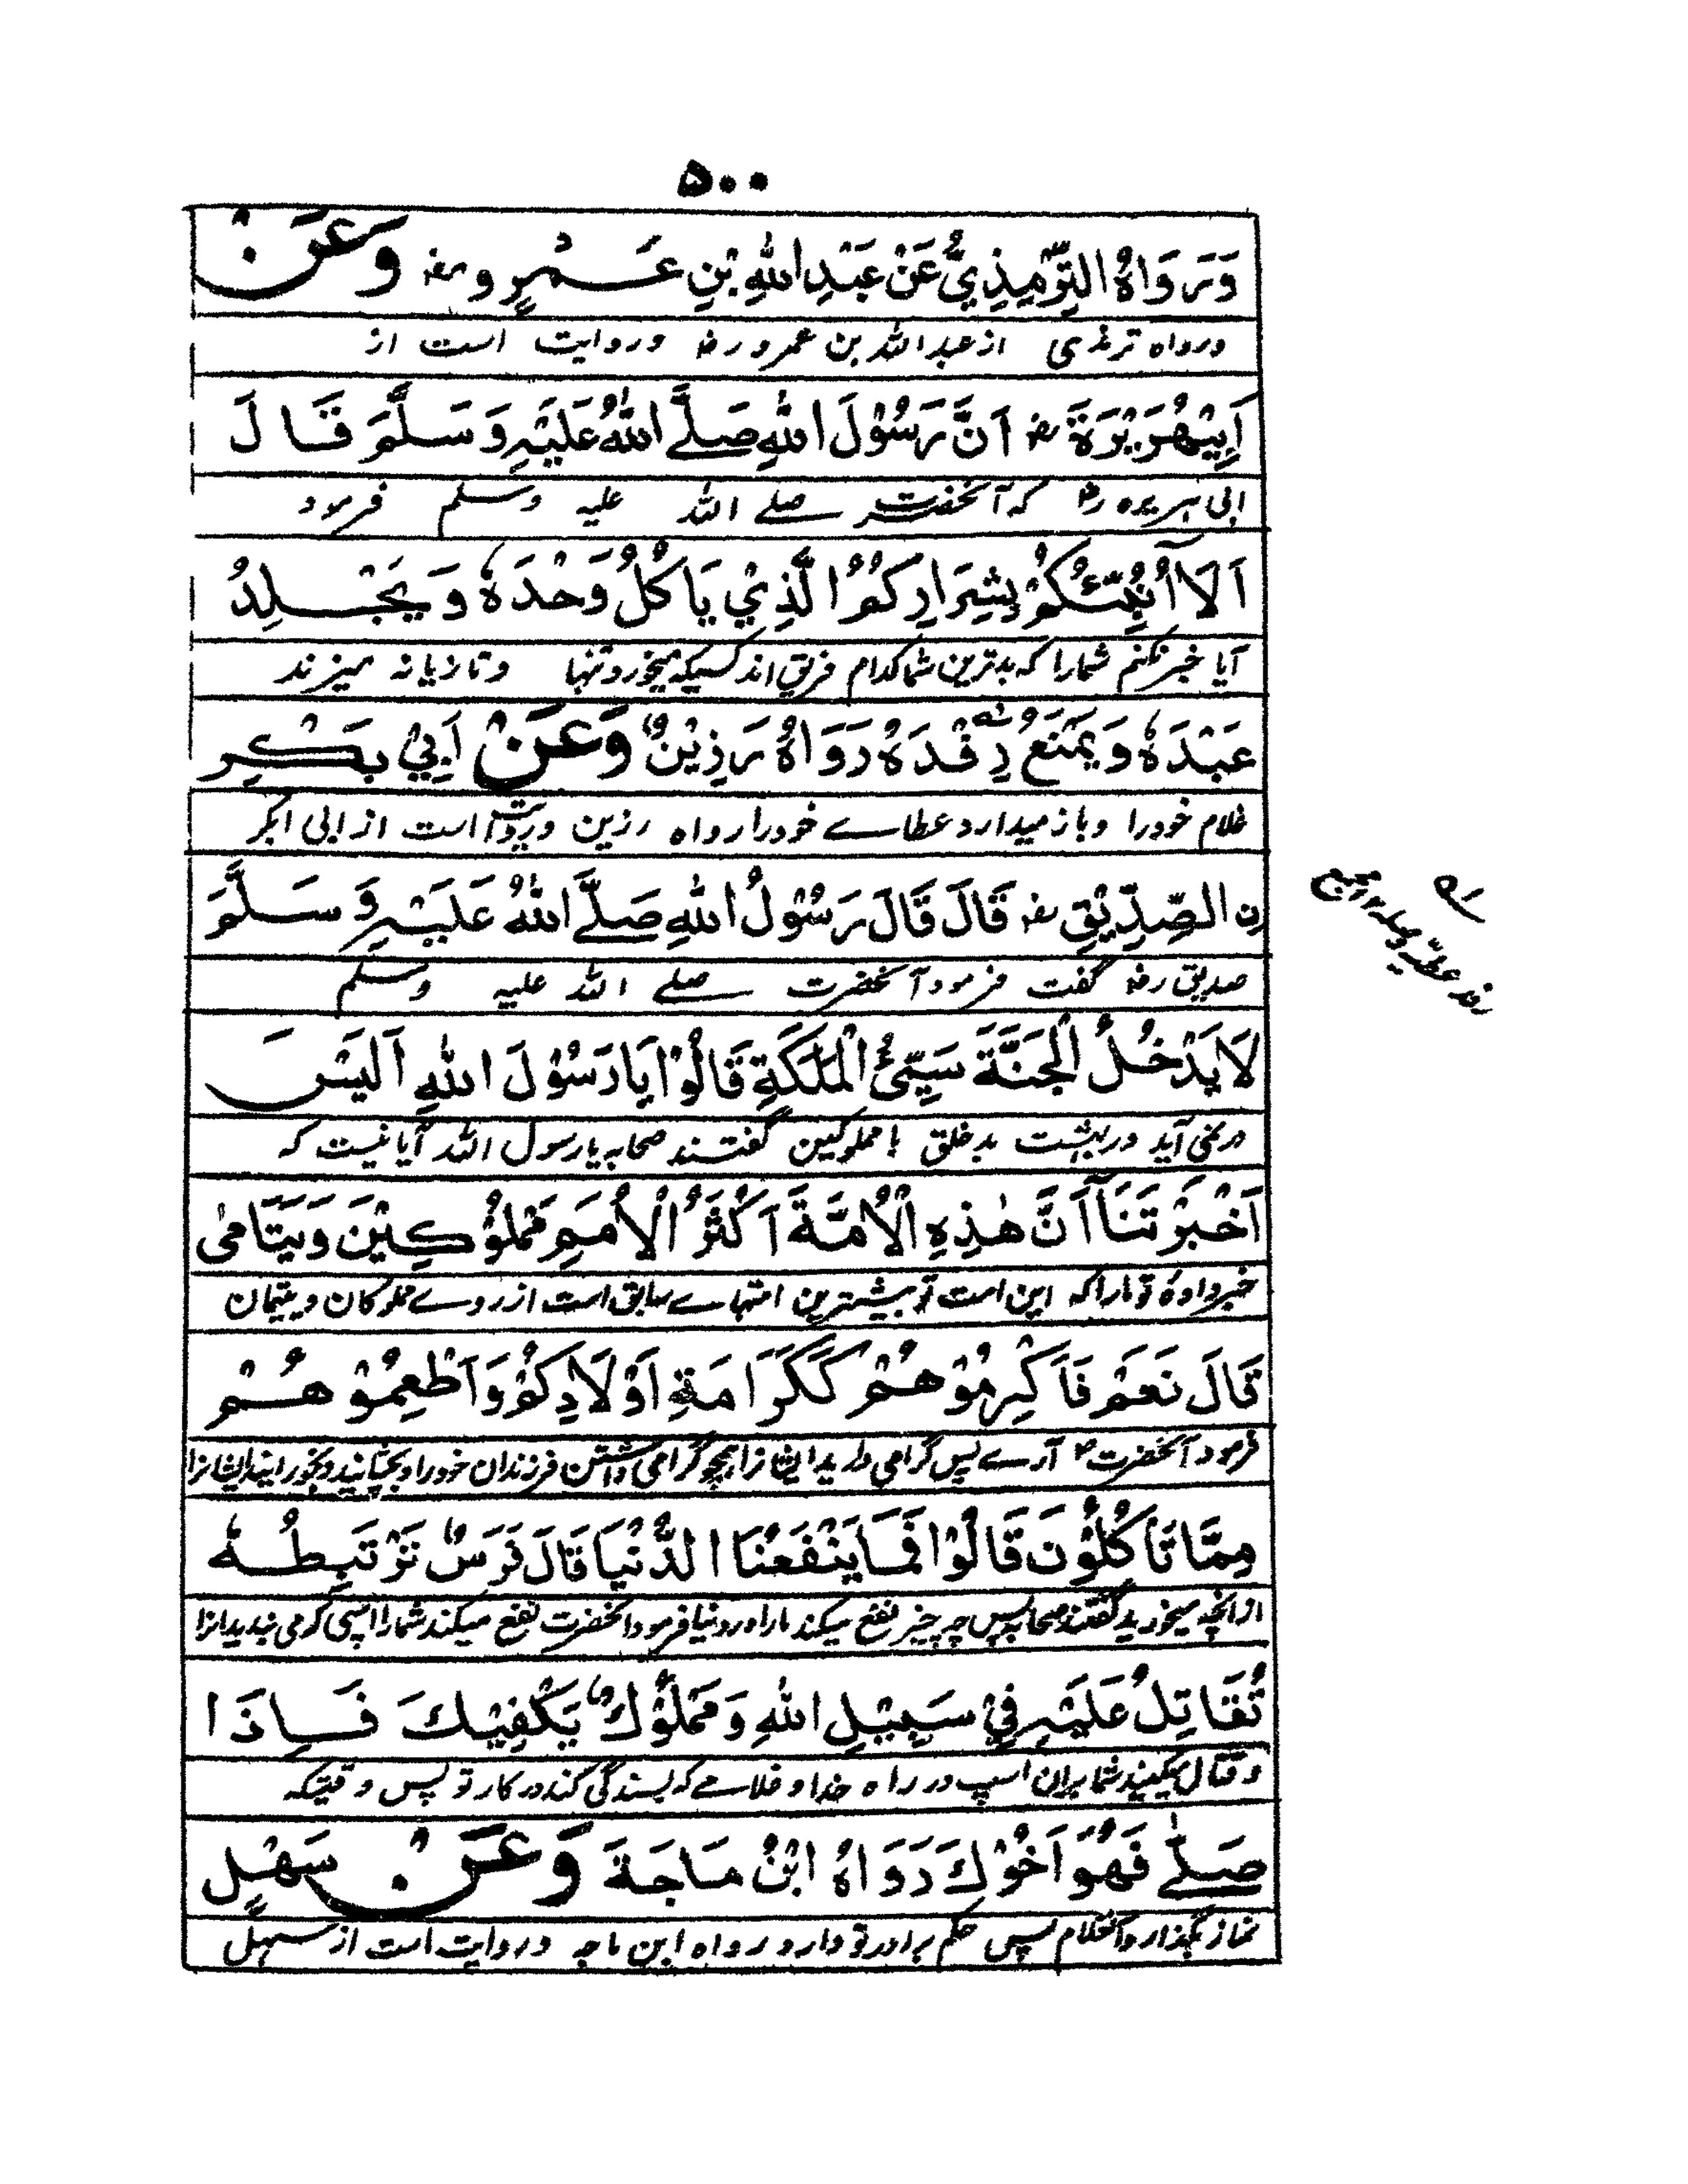 ۵۰۰
وَرَوَاهُ التِّرْمِذِيُّ عَنْ عَبْدِ اللهِ بْنِ عَمْرٍو رضہ وَعَنْ
ورواه ترمذی از عبد الله بن عمرو رضہ وروایت است از
اَبِيْهُرَيْرَةَ رضہ اَنَّ رَسُوْلَ اللهِ صَلَّے اللهُ عَلَيْهِ وَسَلَّمَ قَالَ
ابی ہریره رضہ کہ آنحضرت صلے الله علیہ وسلم فرمود
اَلَا اُنَبِّئُكُمْ بِشِرَارِكُمُ الَّذِيْ يَاكُلُ وَحْدَهٗ وَيَجْلِدُ
آیا خبر نکنم شمارا کہ بدترین شما کدام فریق اند کسیکہ میخورد تنہا وتازیانہ میزند
عَبْدَهٗ وَيَمْنَعُ رِفْدَهُ رَوَاهُ رَزِيْنٌ وَعَنْ اَبِيْ بَكْرِ
غلام خودرا وباز میدارد عطاے خودرا رواه رزین وروایت است از ابی ابکر
نِ الصِّدِّيْقِ رضہ قَالَ قَالَ رَسُوْلُ اللهِ صَلَّے اللهُ عَلَيْهِ وَسَلَّمَ
صدیق رضہ گفت فرمود آنحضرت صلے الله علیہ وسلم
لَا يَدْخُلُ الْجَنَّةَ سَيِّئُ الْمَلَكَةِ قَالُوْا يَا رَسُوْلَ اللهِ اَلَيْسَ
در نمی آید در بہشت بد خلق با مملوکین گفتند صحابہ یا رسول الله آیا نیست کہ
اَخْبَرْتَنَا اَنَّ هٰذِهِ الْاُمَّةَ اَكْثَرُ الْاُمَمِ مَمْلُوْكِيْنَ وَيَتَامٰى
خبر دادۀ تو مارا کہ این امت تو بیشترین امتہاے سابق است از روے مملوکان ویتیمان
قَالَ نَعَمْ فَاَكْرِمُوْهُمْ كَكَرَامَةِ اَوْلَادِكُمْ وَاَطْعِمُوْهُمْ
فرمود آنحضرت آرے پس گرامی دارید ایشانرا ہمچو گرامی داشتن فرزندان خودرا وبخورانید ایشانرا
مِمَّا تَأْكُلُوْنَ قَالُوْا فَمَا يَنْفَعُنَا الدُّنْيَا قَالَ فَرَسٌ تَرْتَبِطُهٗ
از انچہ میخورید گفتند صحابہ پس چہ چیز نفع میکند مارا در دنیا فرمود آنحضرت نفع میکند شمارا اسپی کہ می بندید انرا
تُقَاتِلُ عَلَيْهِ فِيْ سَبِيْلِ اللهِ وَمَمْلُوْكٌ يَكْفِيْكَ فَاِذَا
وقتال میکنید شما بران اسپ در راه خدا وغلامے کہ بسندگی کند در کار تو پس وقتیکہ
صَلّٰے فَهُوَ اَخُوْكَ رَوَاهُ ابْنُ مَاجَةَ وَعَنْ سَهْلِ
نماز بگذارد آنغلام پس حکم برادر تو دارد رواه ابن ماجہ وروایت است از سہل